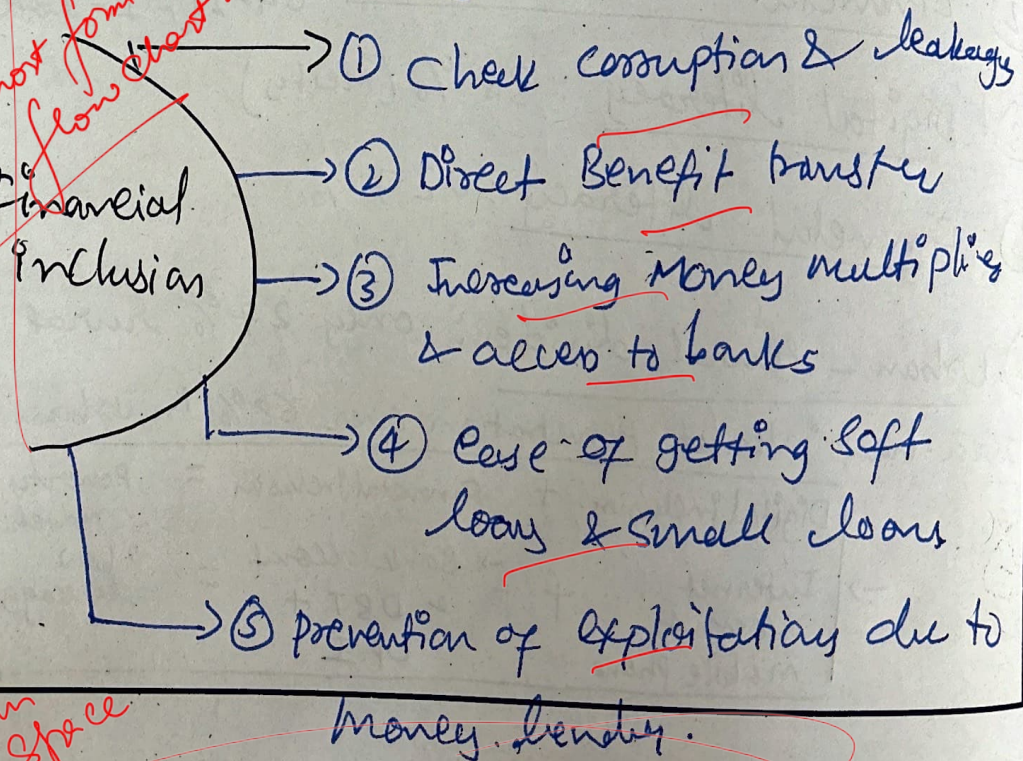 flow chart
Financial
inclusion
① Check corruption & leakages
② Direct Benefit transfer
③ Increasing Money multiplier
& access to banks
④ ease of getting soft
loans & small loans
⑤ prevention of exploitations due to
money lending.
space